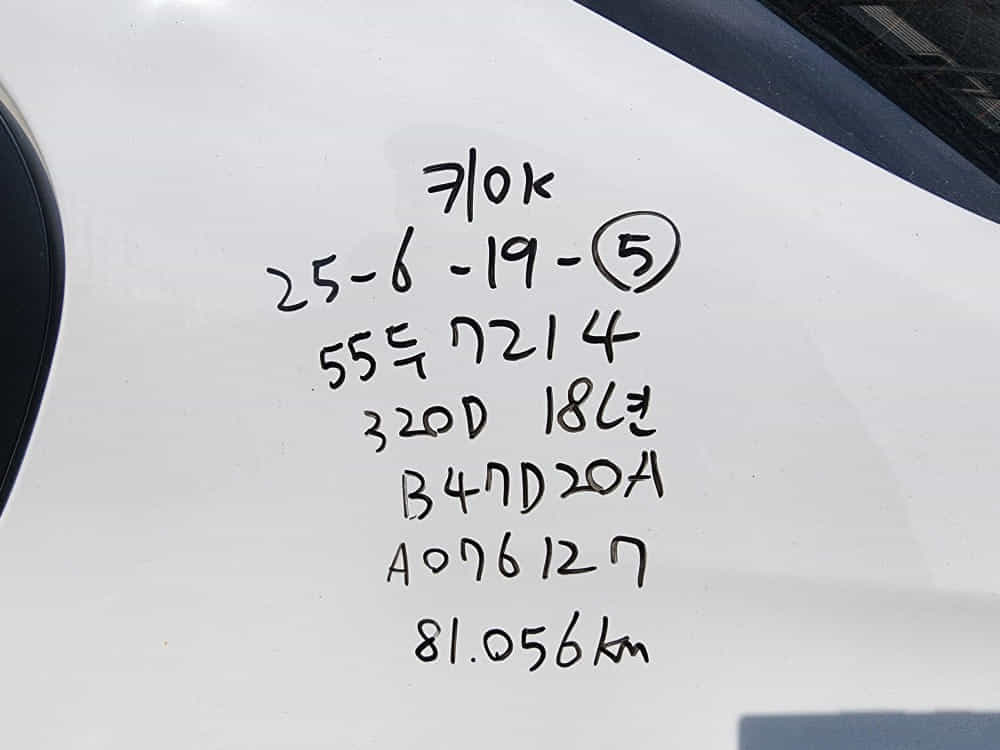 키OK
25-6-19-⑤
55두 7214
320D 18년
B47D20A
A076127
81.056km